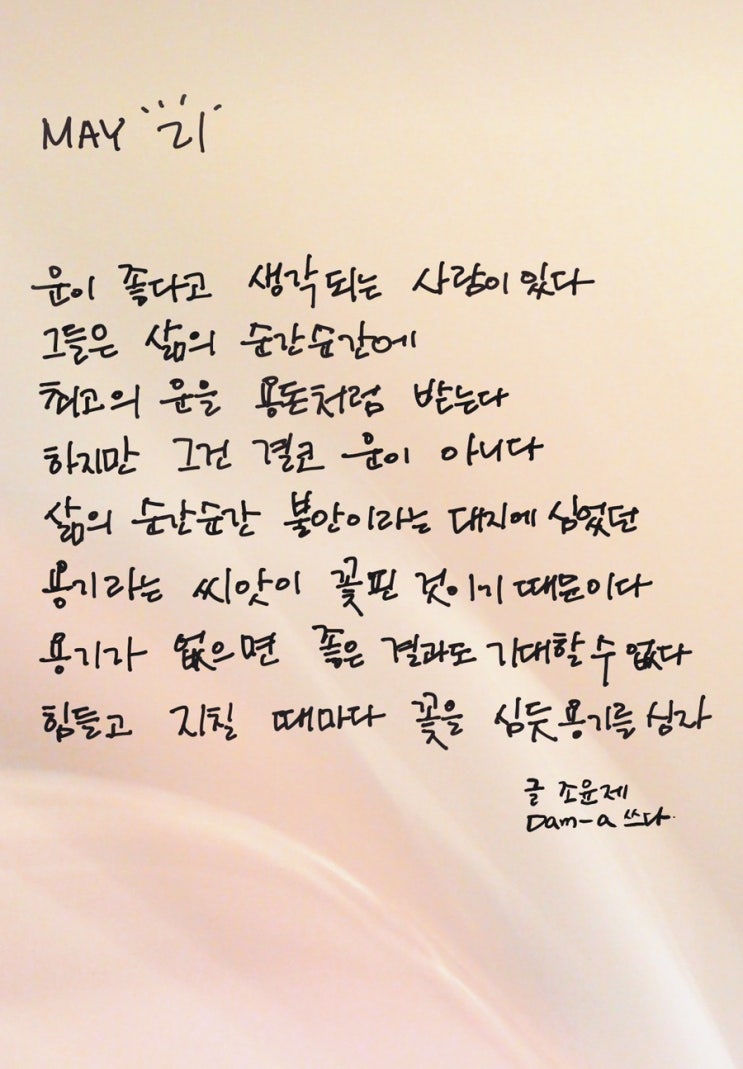 MAY 21
운이 좋다고 생각되는 사람이 있다
그들은 삶의 순간순간에
최고의 운을 용돈처럼 받는다
하지만 그건 결코 운이 아니다
삶의 순간순간 불안이라는 대지에 심었던
용기라는 씨앗이 꽃핀 것이기 때문이다
용기가 없으면 좋은 결과도 기대할 수 없다
힘들고 지칠 때마다 꽃을 심듯 용기를 심자
글 조윤제
Dam-a 쓰다.